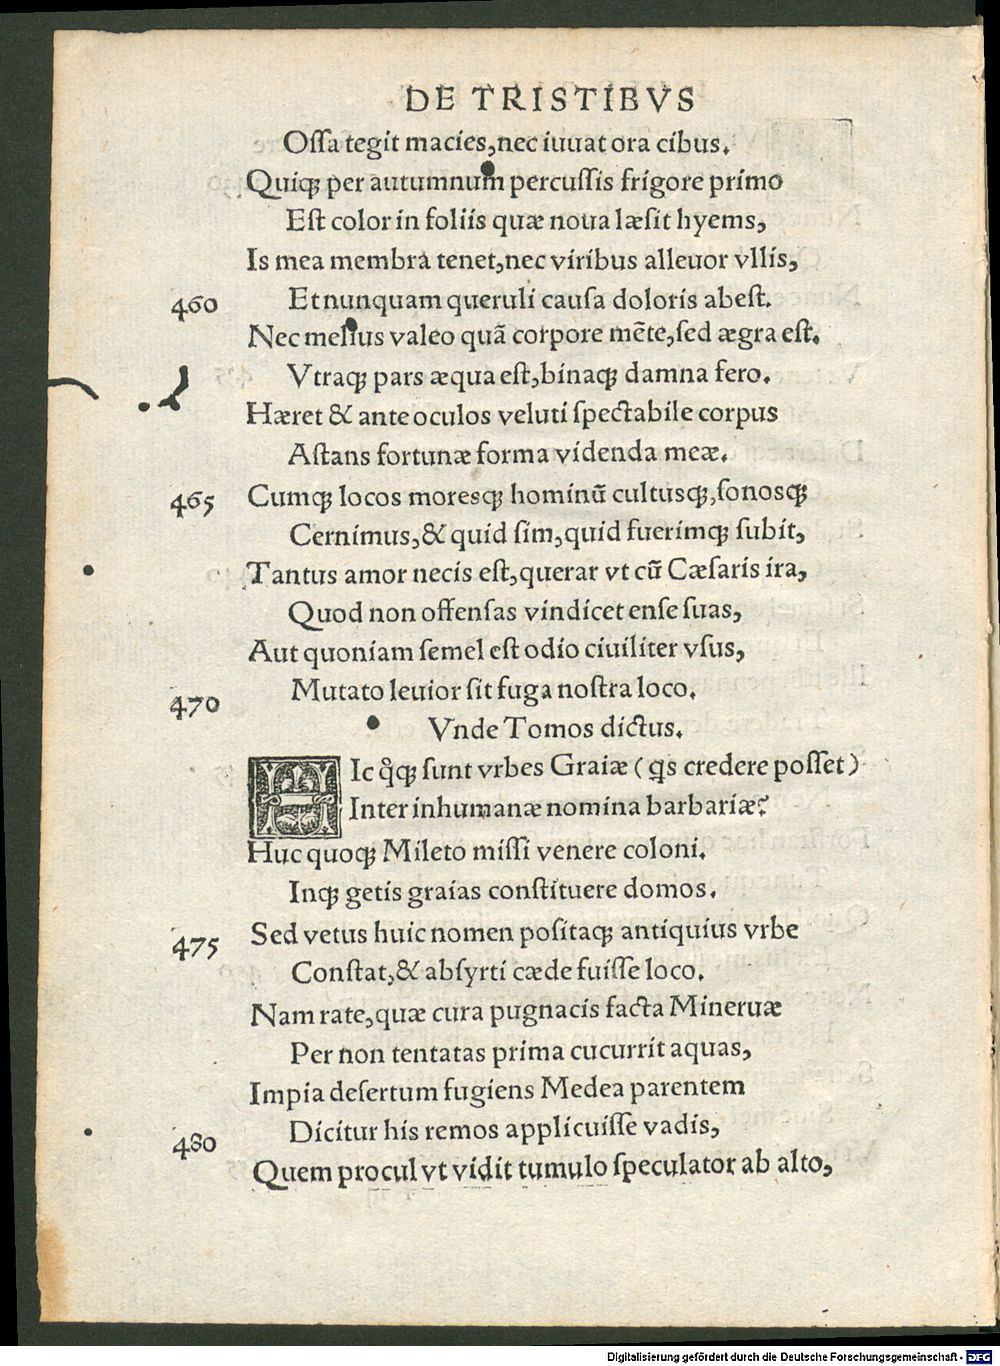 DE TRISTIBVS
Oſſa tegit macies, nec iuuat ora cibus.
Quiqꝫ per autumnum percuſſis frigore primo
Eſt color in foliis quæ noua læſit hyems,
Is mea membra tenet, nec viribus alleuor vllis,
460 Et nunquam queruli cauſa doloris abeſt.
Nec melius valeo quã corpore mẽte, ſed ægra eſt.
Vtraqꝫ pars æqua eſt, binaqꝫ damna fero.
Hæret & ante oculos veluti ſpectabile corpus
Aſtans fortunæ forma videnda meæ.
465 Cumqꝫ locos moresqꝫ hominũ cultusqꝫ, ſonosqꝫ
Cernimus, & quid ſim, quid fuerimqꝫ ſubit,
Tantus amor necis eſt, querar vt cũ Cæſaris ira,
Quod non offenſas vindicet enſe ſuas,
Aut quoniam ſemel eſt odio ciuiliter vſus,
470 Mutato leuior ſit fuga noſtra loco.
Vnde Tomos dictus.
HIc q̊qꝫ ſunt vrbes Graiæ (q̃s credere poſſet)
Inter inhumanæ nomina barbariæ?
Huc quoqꝫ Mileto miſſi venere coloni.
Inqꝫ getis graias conſtituere domos.
475 Sed vetus huic nomen poſitaqꝫ antiquius vrbe
Conſtat, & abſyrti cæde fuiſſe loco.
Nam rate, quæ cura pugnacis facta Mineruæ
Per non tentatas prima cucurrit aquas,
Impia deſertum fugiens Medea parentem
480 Dicitur his remos applicuiſſe vadis,
Quem procul vt vidit tumulo ſpeculator ab alto,
Digitalisierung gefördert durch die Deutsche Forschungsgemeinschaft - DFG